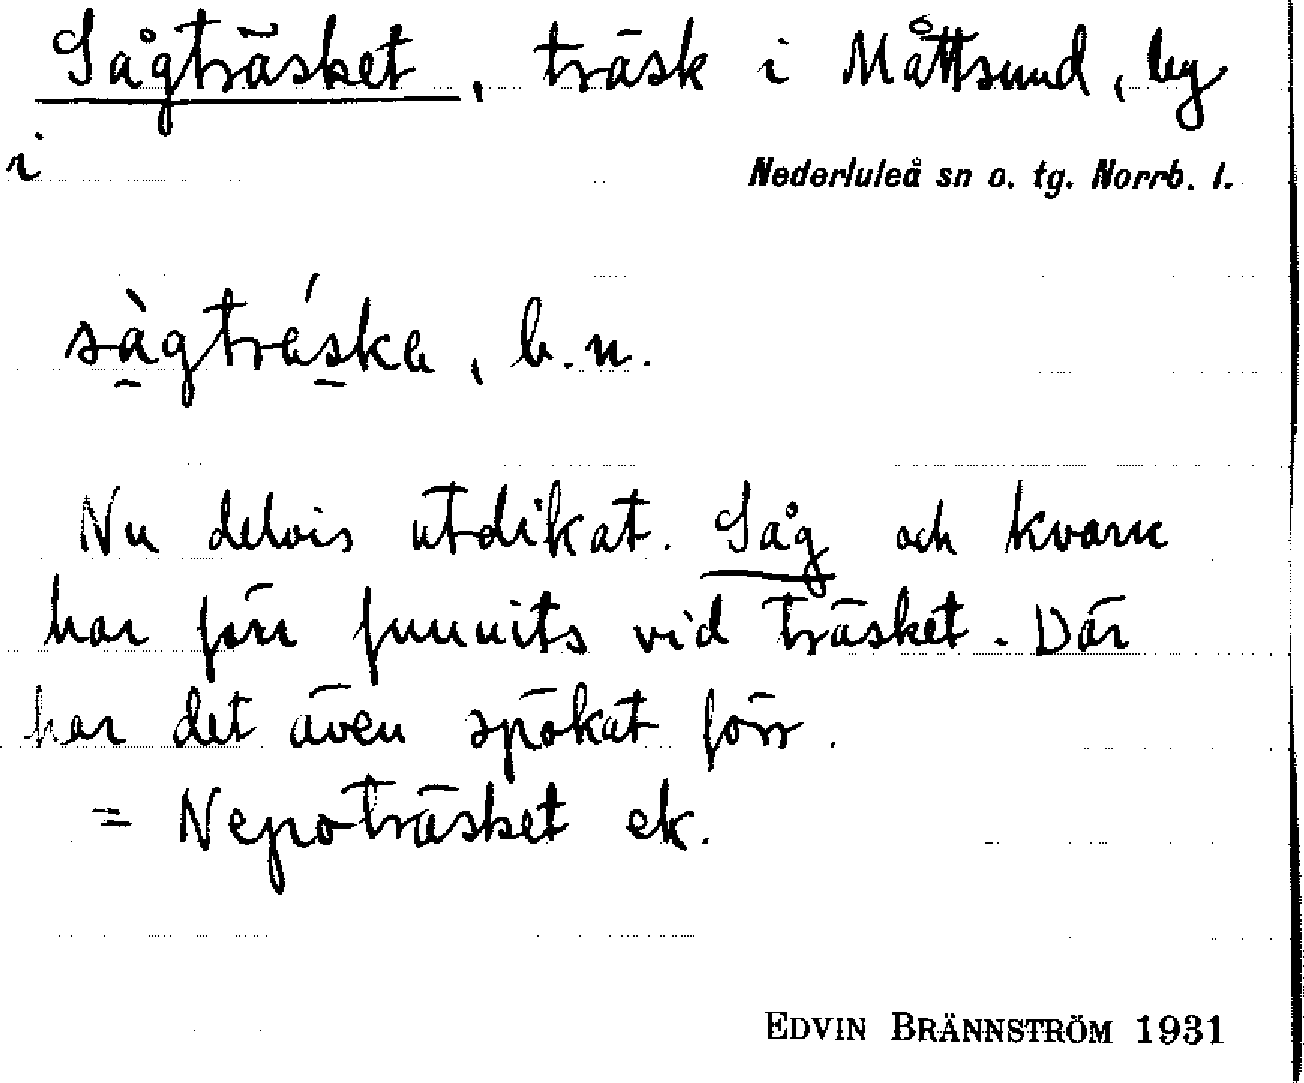 Sågträsket, träsk i Måttsund, by
i
Nederluleå sn o. tg. Norrb. l.
sàgtráska, b.n.
Nu delvis utdikat. Såg och kvarn
har förr funnits vid träsket. Där
har det även spökat förr.
= Nepoträsket ek.
EDVIN BRÄNNSTRÖM 1931